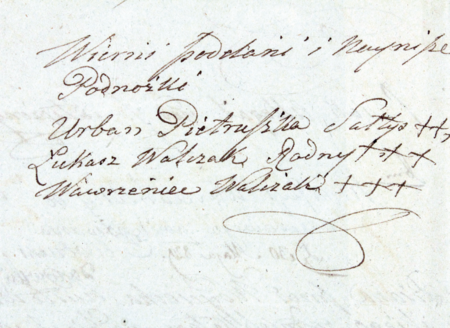 Wierni poddani i Nayniże
Podnożki
Urban Pietruszka Sołtys ++,
Łukasz Walczak Radny +++
Wawrzeniec Walczak +++